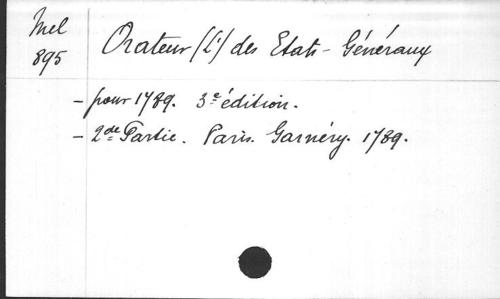 Mel
895
Orateur (L') des Etats-Généraux
- pour 1789. 3e édition.
- 2de Partie. Paris. Garnéry. 1789.